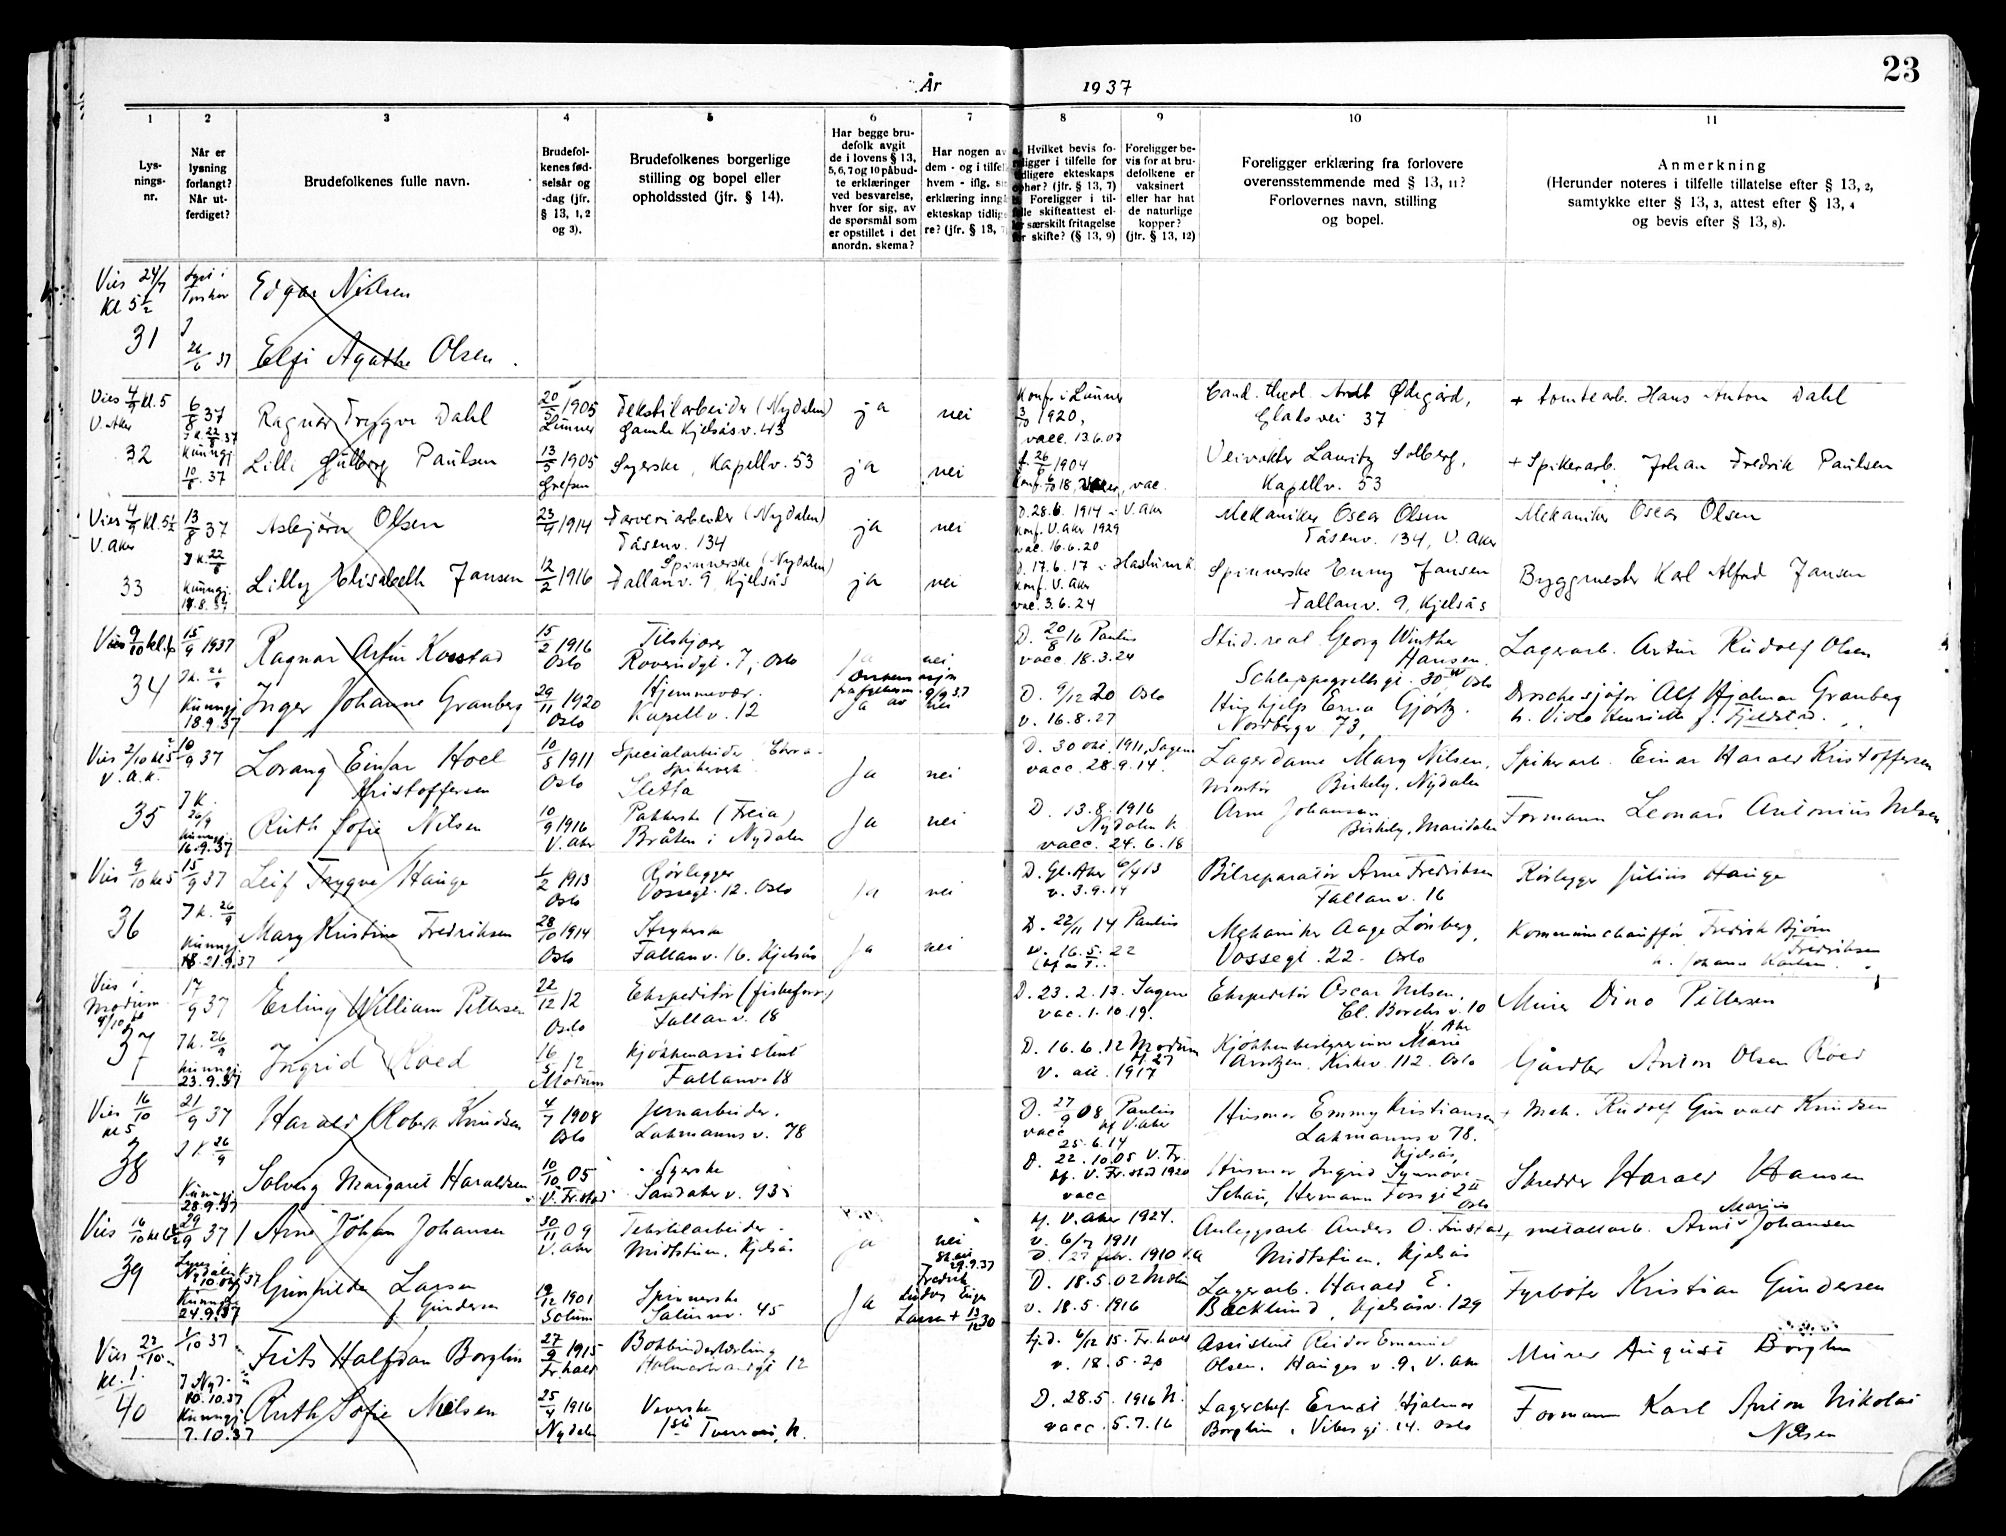 23
År 1937
1 2 3 4 5 6 7 8 9 10 11
Lys-
nings-
nr.
Når er
lysning
forlangt?
Når ut-
ferdiget?
Brudefolkenes fulle navn.
Brudefol-
kenes fød-
selsår og
-dag (jfr.
§ 13, 1, 2
og 3).
Brudefolkenes borgerlige
stilling og bopel eller
opholdssted (jfr. § 14).
Har begge bru-
defolk avgit
de i lovens § 13,
5, 6, 7 og 10 påbud-
te erklæringer
ved besvarelse,
hver for sig, av
de spørsmål som
er opstillet i det
anordn. skema?
Har nogen av
dem - og i tilfel
hvem - iflg. si
erklæring inngå
ekteskap tidlig
re? (jfr. § 13,
Hvilket bevis fo-
religger i tilfelle for
tidligere ekteskaps
ophør? (jfr. § 13, 7)
Foreligger i til-
felle skifteattest el-
ler særskilt fritagelse
for skifte? (§ 13, 9)
Foreligger be-
vis for at bru-
defolkene er
vaksinert
eller har hat
de naturlige
kopper?
(jfr. § 13, 12)
Foreligger erklæring fra forlovere
overensstemmende med § 13, 11?
Forlovernes navn, stilling
og bopel.
Anmerkning
(Herunder noteres i tilfelle tillatelse efter § 13, 2,
samtykke efter § 13, 3, attest efter § 13, 4
og bevis efter § 13, 8).
Vies 24/7
Kl 5 1/2
31
26/6 37
Edgar Nielsen
Elfi Agathe Olsen.
Vies 4/9 kl. 5
V. Aker
32
6/8 37
J K. 22/8 37
Kunngj.
10/8. 37
Ragnar Trygve Dahl
20/5 1905
Lunner
Tekstilarbeider (Nydalen)
Gamle Kjelsåsv. 43
ja
nei
Konf. i Lunner
3/10 1920,
vacc. 13.6.07
Cand. theol Ardt Ødegård,
Gladsvei 37
+ tomtearb. Hans Anton Dahl
Lilli Gulborg Paulsen
13/5 1905
Grefsen
Syerske, Kapellv. 53
ja
nei
f. 26/6 1904
vac.
Veivokter Lauritz Solberg,
Kapellv. 53
+ Spikerarb. Johan Fredrik Paulsen
Vies 4/9 kl. 5 1/2
V. Aker
33
13/8 37
J K. 22/8
Kunngj.
17.8.37
Asbjørn Olsen
23/4 1914
Farveriarbeider (Nydalen)
Tåsenv. 134
ja
nei
D. 28.6. 1914 - V. Aker
Konf. V. Aker 1929
vac. 16.6.20
Mekaniker Oscar Olsen
Tåsenv. 134, V. Aker
Mekaniker Oscar Olsen
Lilly Elisabeth Jansen
12/2 1916
Spinnerske (Nydalen)
Fallanv. 9, Kjelsås
ja
nei
D. 17.6.17 - Haslum k.
Konf. V. Aker
vac. 3.6.24
Spinnerske Enny Jansen
Fallanv. 9, Kjelsås
Byggmester Karl Alfred Jansen
Vies 9/10 kl. 6
34
15/9 1937
J K. 26/9
Kunngj.
18.9.37
Ragnar Artur Korstad
15/2 1916
Oslo
Tilskjærer
Roverudgt. 7, Oslo
ja
nei
D. 20/8 16 Paulus
vacc. 18.3.24
Stud. real Georg Winther
Hansen.
Schleppegrellsgt. 30 Oslo
Lagerarb. Artur Rudolf Olsen
Inger Johanne Granberg
29/11 1920
Oslo
Hjemmevær.
Kapellv. 12
Ja
nei
D. 9/12 20 Oslo
v. 16.8.27
Hushjelp Erna Gjørtz.
Nordbergv 73,
Droschesjåfør Alf Hjalmar Granberg
h. Viola Henriette f. Fjeldstad.
Vies 2/10 kl 5
V. A.K.
35
10/9 37
J K.
26/9
Kunngj.
16.9.37
Lorang Einar Hoel
Kristoffersen
10/8 1911
Oslo
Specialarbeider
Spikerverk
Sletta
Ja
nei
D. 30 okt. 1911, Sagene
vacc. 28.9.14.
Lagerdame Mary Nilsen,
Birkely, Nydalen
Spikerarb. Einar Harald Kristoffersen
Ruth Sofie Nilsen
10/9 1916
V. Aker
Pakkerske (Freia)
Bråten i Nydalen
Ja
nei
D. 13.8.1916
Nydalen k
vacc. 24.6.18
Montør
Arne Johansen
Birkely, Maridalen
Formann Leonard Antonius Nilsen
Vies 9/10 kl 5
36
15/9 37
J K. 26/9
Kunngj.
21.9.37
Leif Trygve Hauge
1/2 1913
Oslo
Rørlegger
Vossegt. 12. Oslo
Ja
nei
D. Gl. Aker 6/4 13
v. 3.9.14
Bilreparatør Arne Fredriksen
Fallanv. 16
Rørlegger Julius Hauge
Mary Kristine Fredriksen
28/10 1914
Oslo
Strykerske
Fallanv. 16. Kjelsås
Ja
nei
D. 22/11 14 Paulus
v. 16.5.22
Mekaniker Aage Lönberg,
Vossegt. 22. Oslo
Kommunechauffør Fredrik Bjørn
Fredriksen
Vies i
Modum
9/10 kl
37
17/9 37
J K. 26/9
Kunngj.
23.9.37
Erling William Pettersen
22/12 12
Oslo
Ekspeditør (fiskeforr.)
Fallanv. 18
D. 23.2.13. Sagene
vac. 1.10.19.
Ekspeditør Oscar Nilsen,
V. Aker
Murer Dino Pettersen
Ingrid Roed
16/5 12
Modum
Kjøkkenassistent
Fallanv. 18
D. 16.6.12 Modum
v. att. 1917
Kjøkkenbestyrerinne Marie
Arntzen, Kirkev 112. Oslo
Gårdbr Anton Olsen Røed
Vies 16/10
kl 5
38
21/9 37
J K. 26/9
Kunngj.
28.9.37
Harald Robert Knudsen
4/7 1908
Oslo
Jernarbeider.
Lakmanns v. 78
D. 27/9 08, Paulus
kf V. Aker
vacc
25.6.14
Husmor Emmy Kristiansen
Lakmanns v 78.
Kjelsås,
+ Mek. Rudolf Gunvald Knudsen
Solveig Margaret Haraldsen
10/10 05
V. Fr.stad
Syerske
Sandaker v. 93
D. 22.10.05 V. Fr.
kf. V. Fr.stad 1920
vacc
Husmor Ingrid Synnøve
Schau, Hermann Fossgt 2
Oslo
Skredder Harald Hansen
Vies 16/10 kl 6
39
29/9 37
Nydalen k
10.okt. 37
Kunngj.
24.9.37
Arne Johan Johansen
30/11 09
V. Aker
Tekstilarbeider.
Midtstuen, Kjelsås
ja
nei
kf. V. Aker 1924.
v. 6/7 1911
D. 27 febr. 1910 V.A
Anleggsarb. Anders O. Finstad,
Midtstuen, Kjelsås
+ metallarb. Arne Marius Johansen
Gunhilda Larsen
f Gundersen
19/12 1901
Solum
Spinnerske
Salumv. 45
Ja
29.9.37
Fredrik
Ludvig
Larsen + 13/12 30
D. 18.5.02 Melum
v. 18.5.1916
Lagerarb. Harald E.
Backlund, Kjelsåsv. 129
Fyrbøter Kristian Gundersen
Vies 23/10
kl. 1.
40
1/10 37
J Nyd.
10.10.37
Kunngj.
7.10.37
Frits Halfdan Borglin
27/9 1915
Fr.hald
Bokbinderlærling
12
Hj.d. 6/12 15. Fr.hald
v. 18.5.20
Assistent Reidar Emanuel
Olsen, Hauges v. 9, V. Aker
Murer August Borglin
Ruth Sofie Nielsen
25/4 1916
Nydalen
Veverske
1ste Tverrvei, N.
D. 28.5.1916 N.
vacc. 5.7.16
Lagerchef Ernst Hjalmar
Borglin, Vibesgt. 14. Oslo
Formann Karl Anton Nikolai
Nilsen